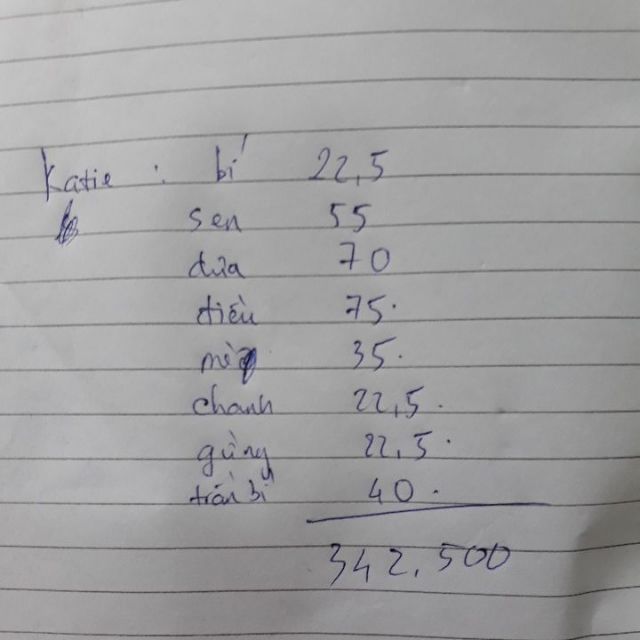 Katie : bí 22,5
sen 55
dừa 70
điều 75.
mè 35.
chanh 22,5.
gừng 22,5.
trần bì 40.
342.500